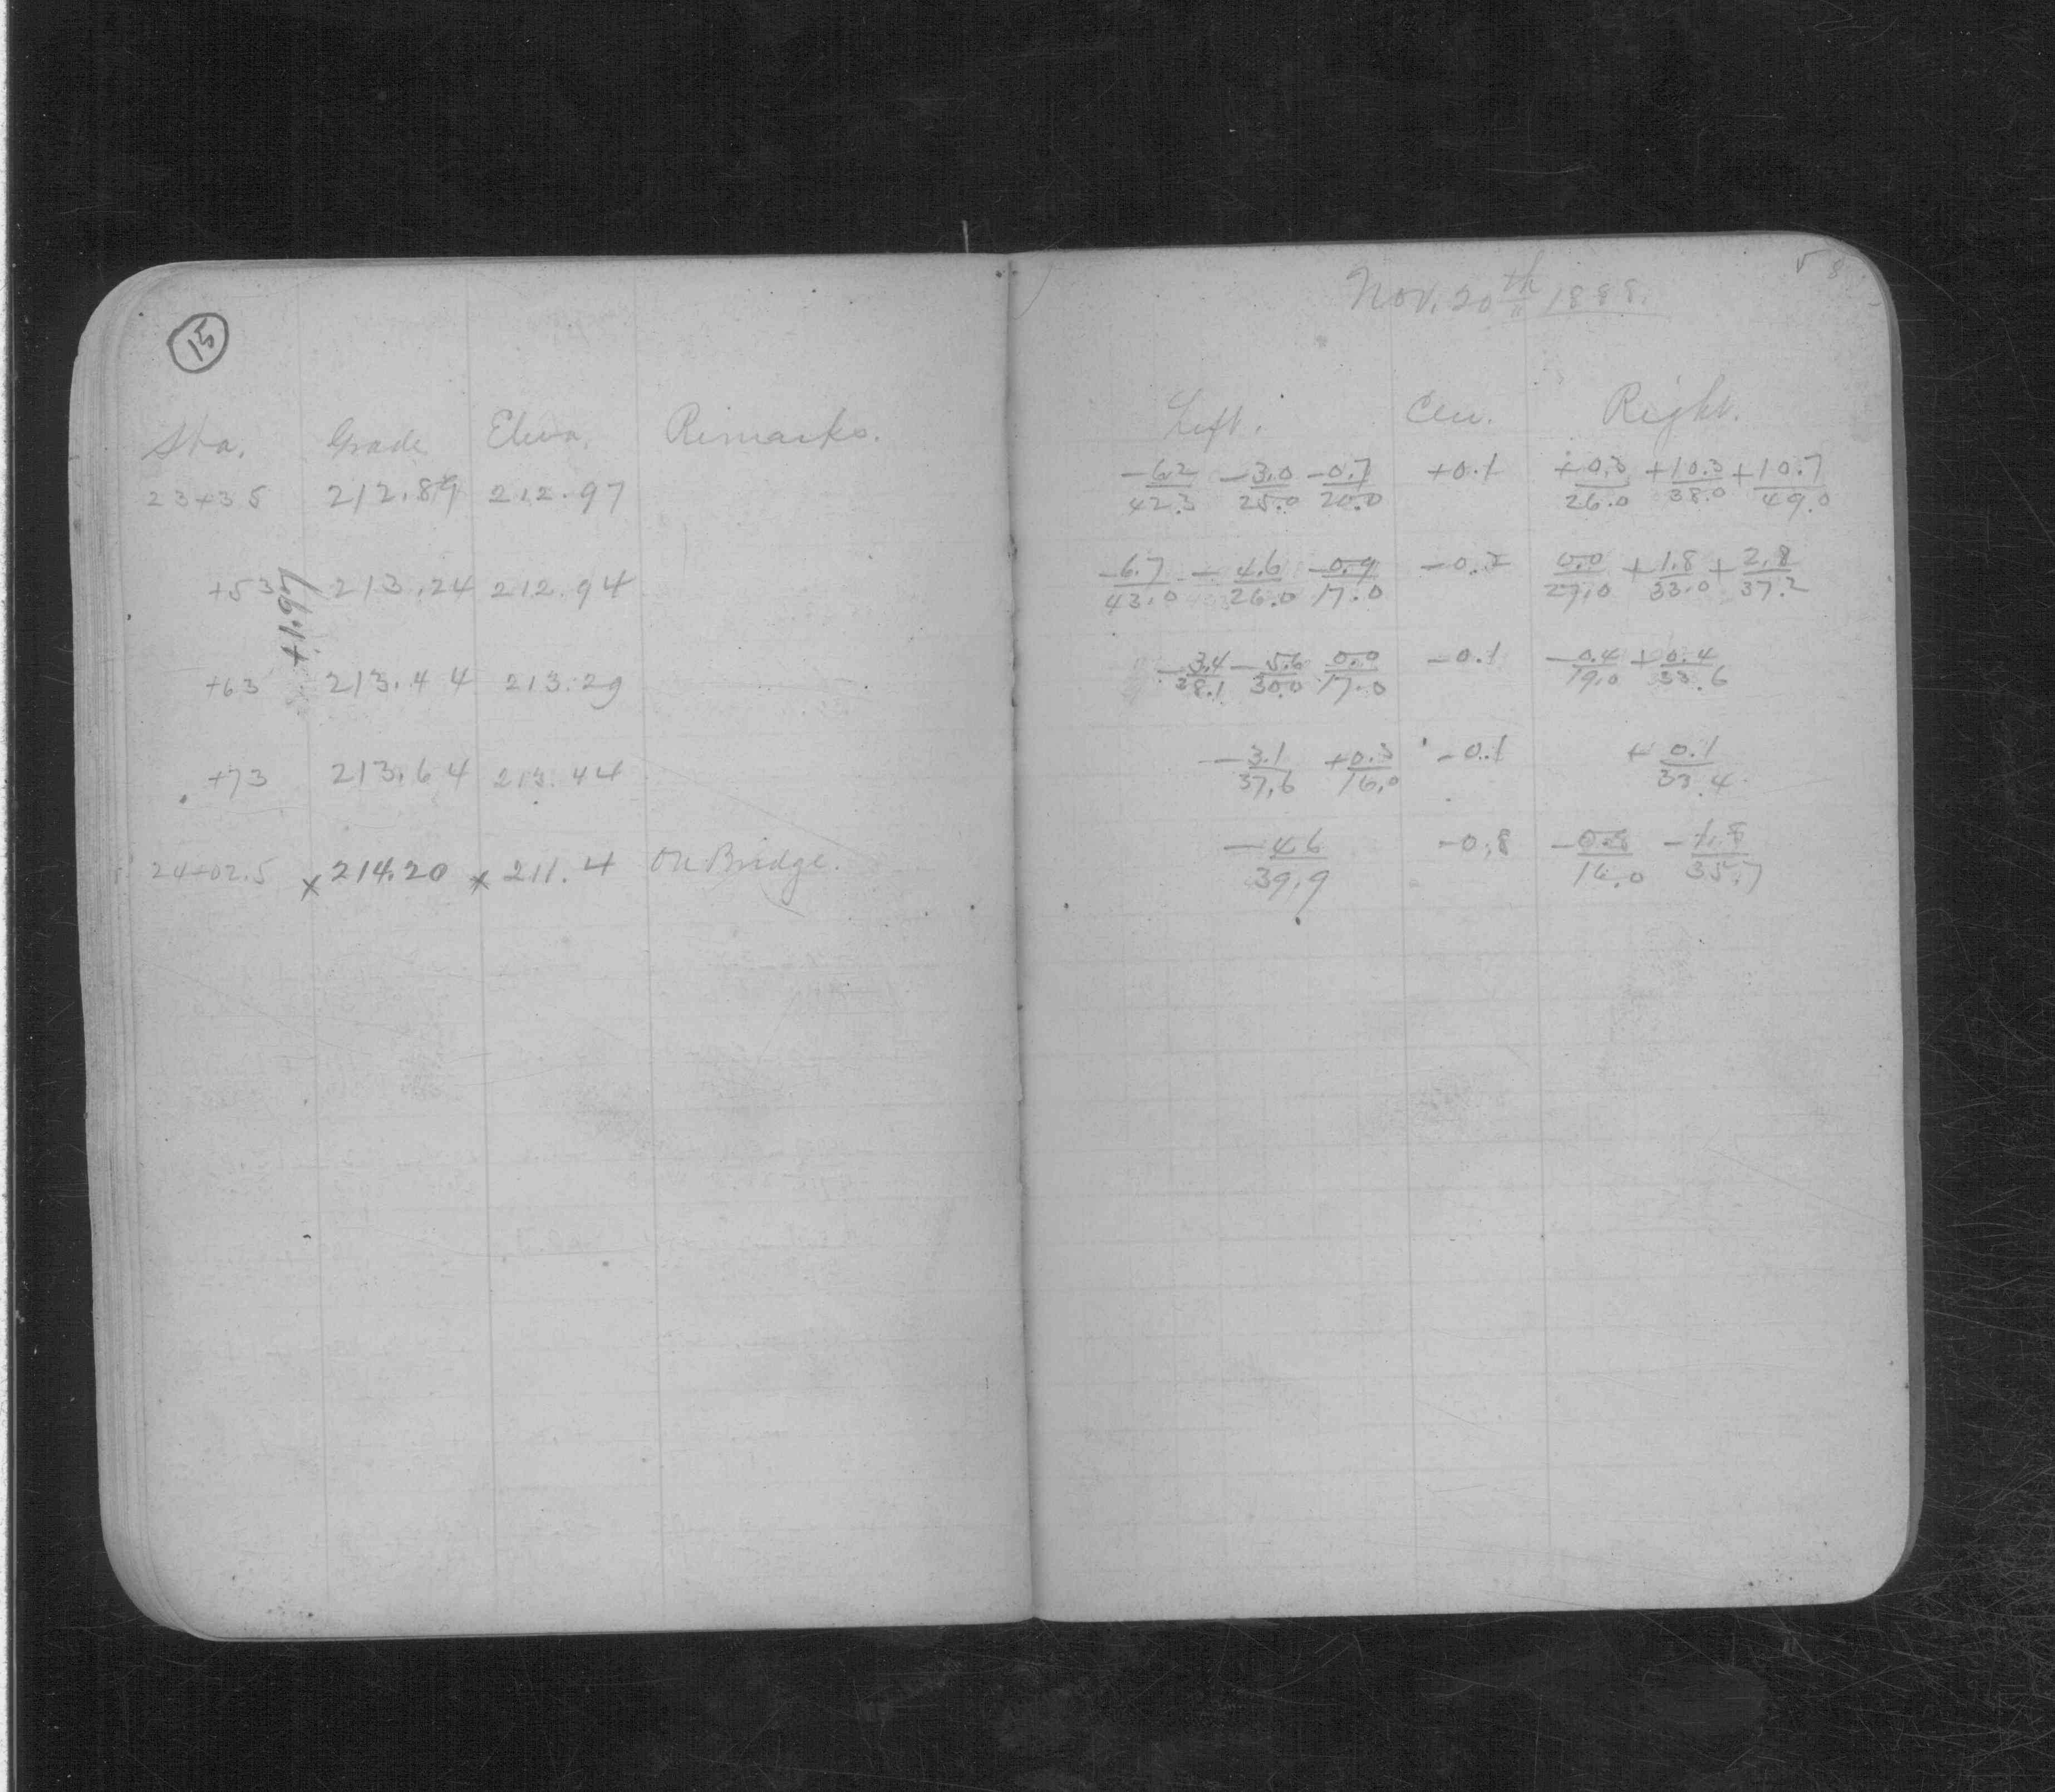 15
Sta. Grade Eleva. Remarks.
23+35 212.89 212.97
+53 213.24 212.94
+63 213.44 213.29
+73 213.64 213.44
24+02.5 x 214.20 x 211.4 On Bridge.
+1.997
58
Nov. 20th 1888.
Left. Cen. Right.
-6.2/42.3 -3.0/25.0 -0.7/20.0 +0.1 +0.3/26.0 +10.3/38.0 +10.7/49.0
-6.7/43.0 -4.6/26.0 -0.9/17.0 -0.2 0.0/27.0 +1.8/33.0 +2.8/37.2
-3.4/38.1 -5.6/30.0 0.0/17.0 -0.1 -0.4/19.0 +0.4/33.6
-3.1/37.6 +0.3/16.0 -0.1 +0.1/33.4
-4.6/39.9 -0.8 -0.8/16.0 -1.8/35.7